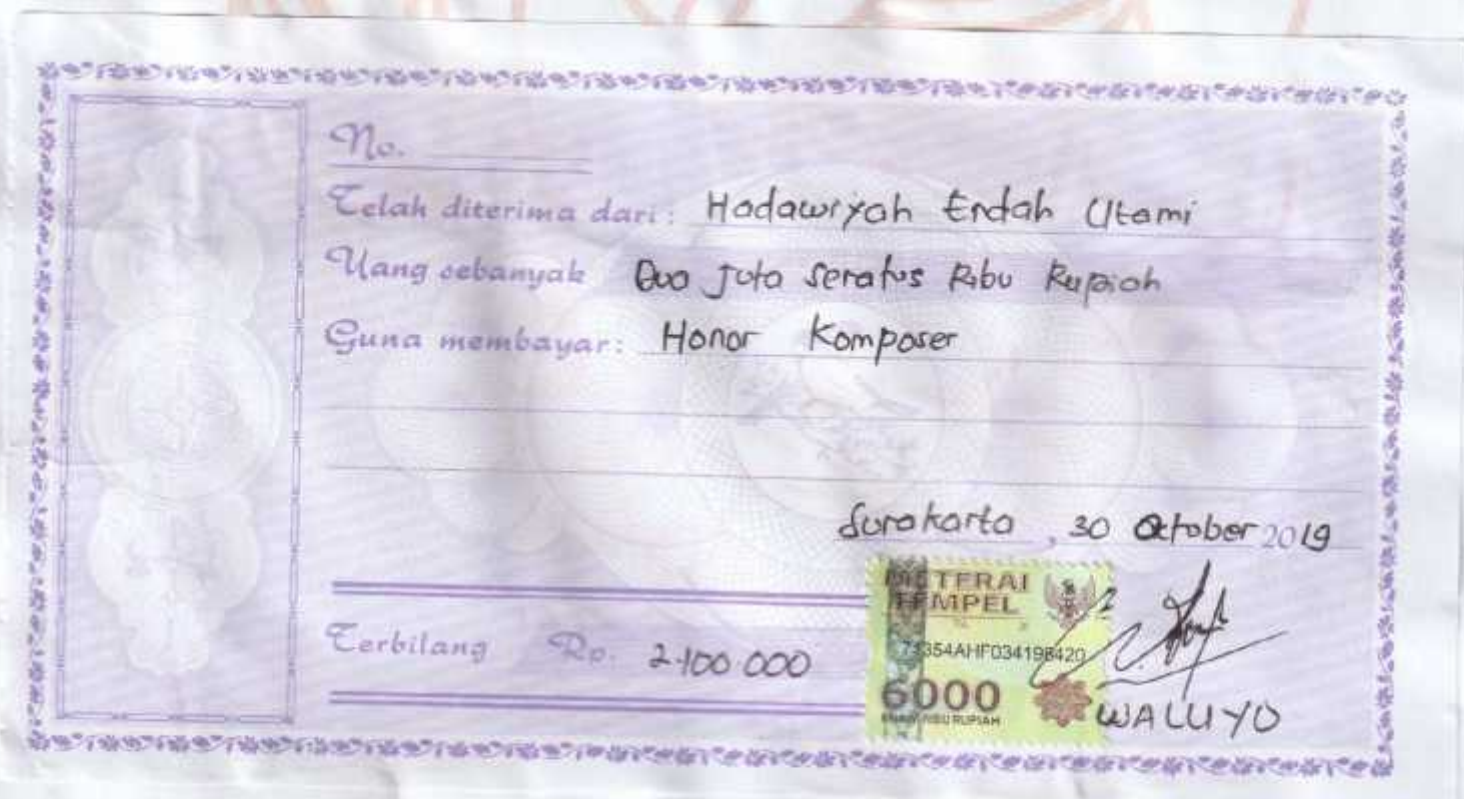 No.
Telah diterima dari : Hadawiyah Endah Utami
Uang sebanyak Dua Juta Seratus Ribu Rupiah
Guna membayar : Honor Komposer
Surakarta, 30 Oktober 2019
METERAI
TEMPEL
Terbilang Rp. 2.100.000
71354AHF034198420
6000
ENAM RIBU RUPIAH
WALUYO